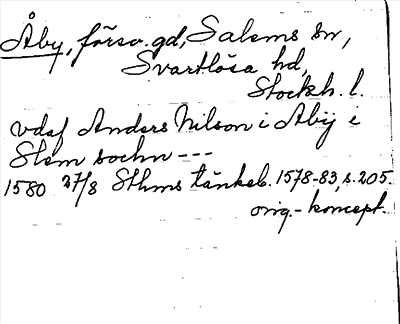 Åby, försv. gd, Salems sn,
Svartlösa hd,
Stockh. l.
vdaf Anders Nilson i Åbij i
Slem sochn ---
1580 27/8 Sthms tänkeb. 1578-83, s. 205.
orig.-koncept.